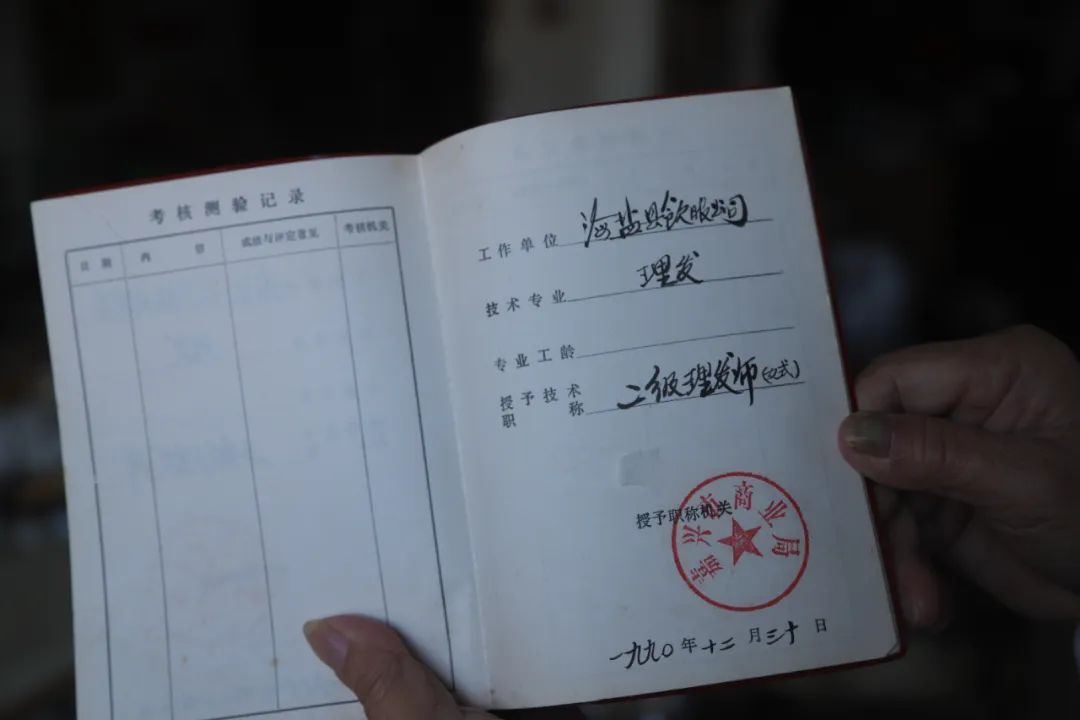 考核测验记录
日期 内容 成绩与评定意见 考核机关
工作单位 海盐县饮服公司
技术专业 理发
专业工龄
授予技术职称 二级理发师(男式)
授予职称机关
嘉兴市商业局
一九九〇年十二月三十日